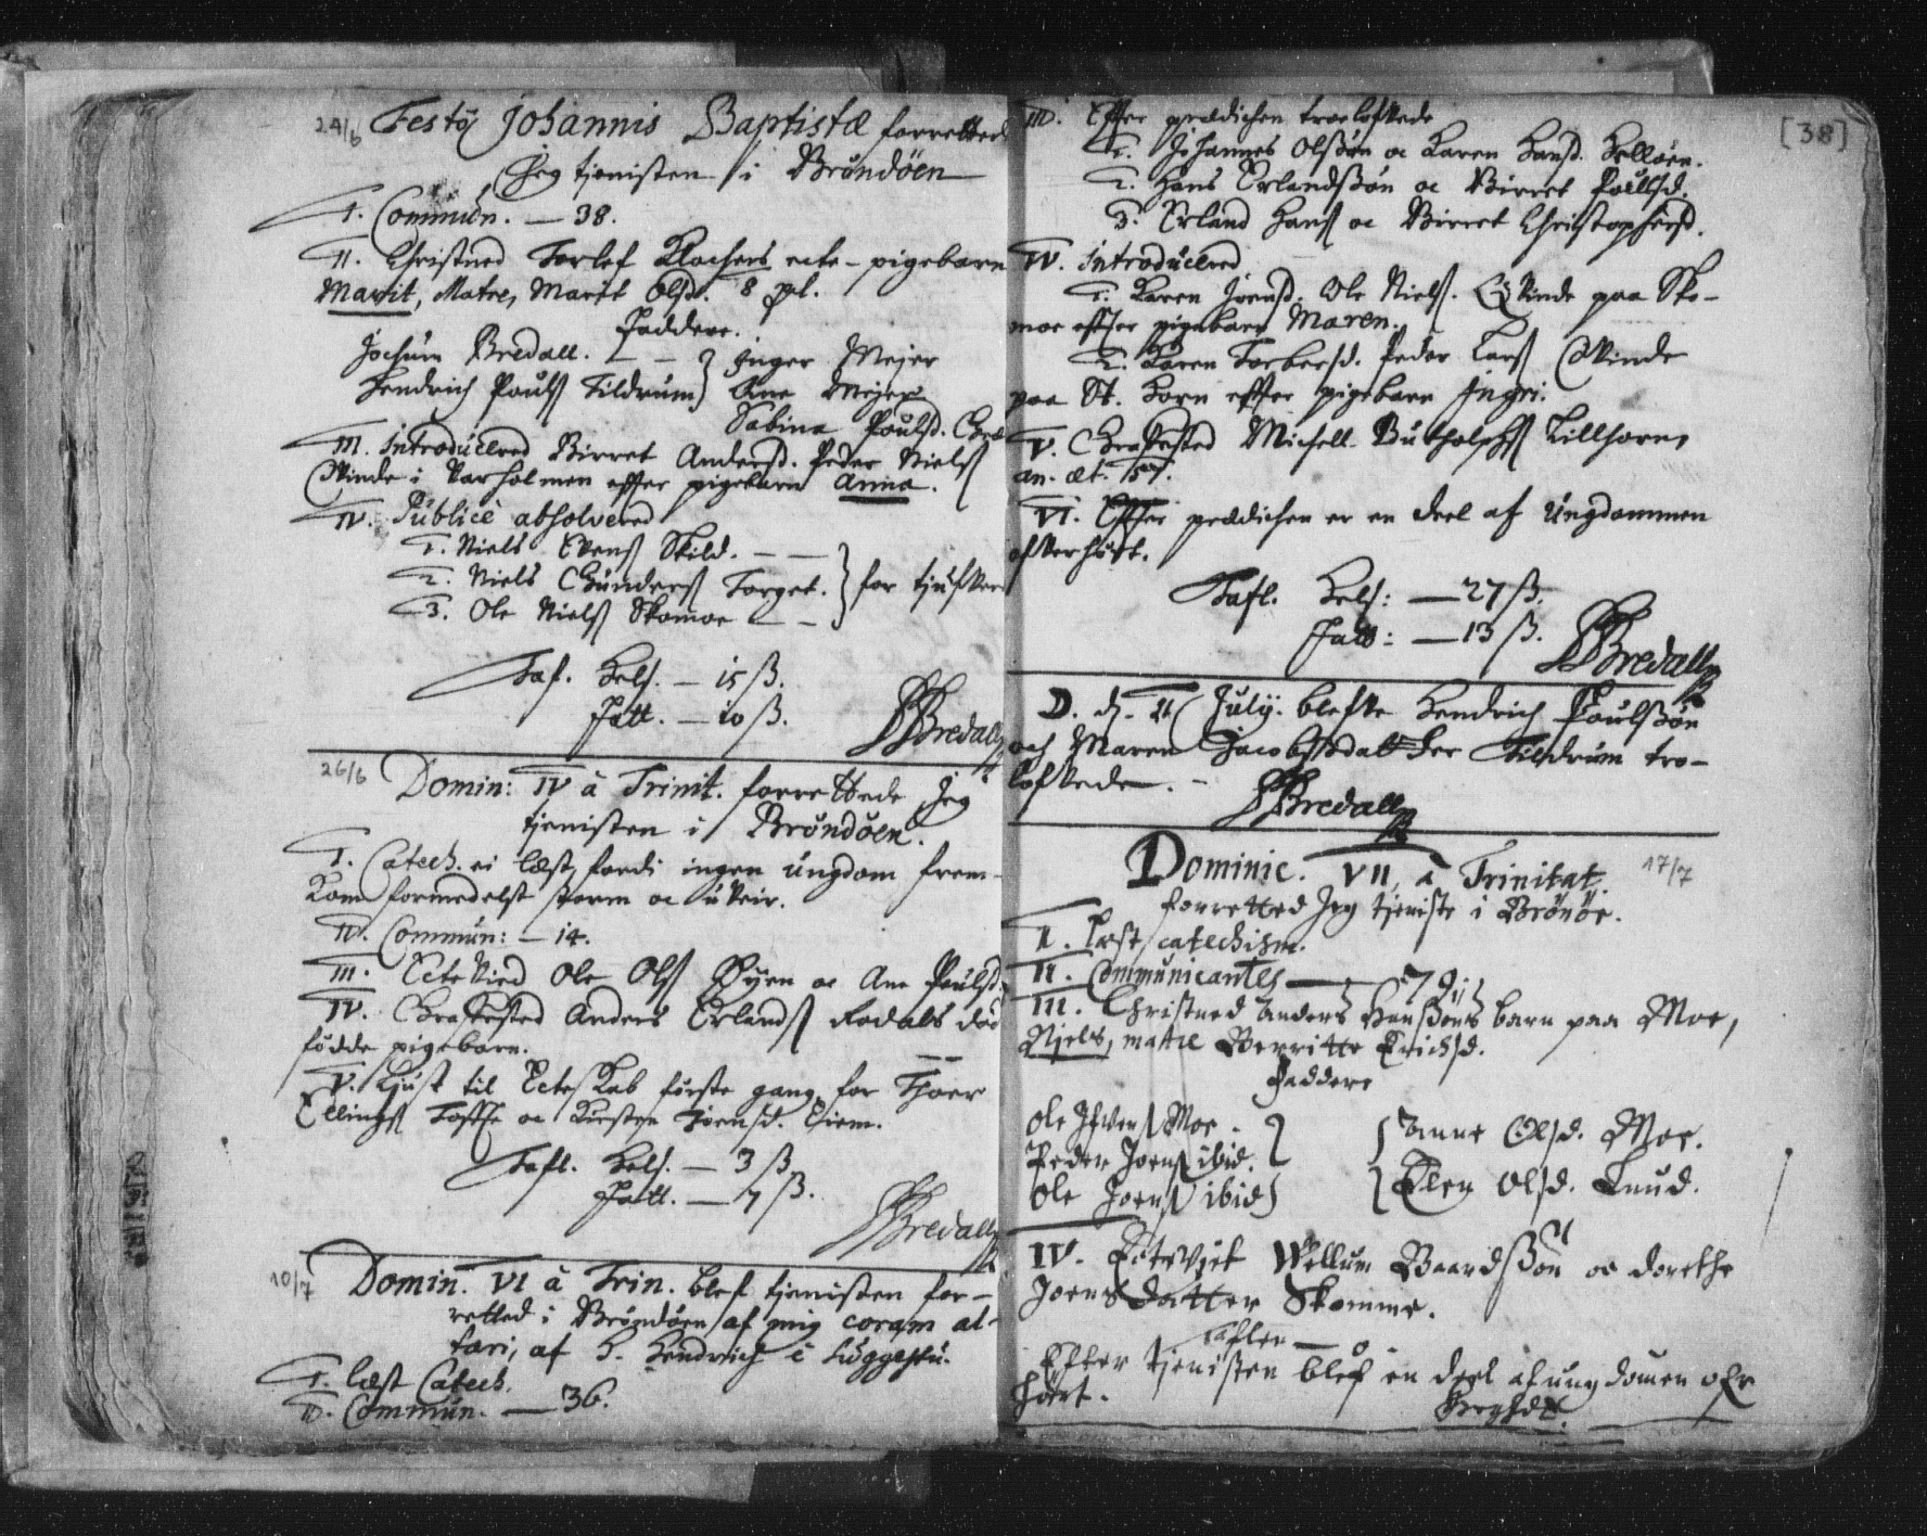 24/6 Festo Johannis Baptistæ forretted
Jeg tjenisten i Brøndøen
I. Commun. — 38.
II. Christned Torlef Klochers ecte-pigebarn
Marit, Matre, Marit Olsd. 8 pl.
Faddere.
Jochum Bredall. — — } Inger Mejer
Hendrich Pouls Tildrum } Ane Mejer
Sabina Poulsd.
III. Introducered Birret Andersd. Peder Niels
Qvinde i Varholmen effter pigebarn Anna.
IV. Publicè absolvered
1. Niels Evens Skild. — —
2. Niels Gunders Torget. } for tjufveri
3. Ole Niels Skomoe — —
Taf. Hels. — 15 ß.
Fatt. — 10 ß.
Bredall
26/6 Domin: IV à Trinit. forrettede Jeg
tjenisten i Brøndøen.
I. Catech. ei læst, fordi ingen ungdom frem-
kom formedelst storm oc uveir.
II. Commun: — 14.
III. Ectevied Ole Ols Øyen oc Ane Poulsd.
IV. Grafested Anders Erlands Rodals død
fødde pigebarn.
V. Liust til Ecteskab første gang for Thoer
Ellings Tofte oc Kirsten Joensd. Tiem.
Tafl. Hels. — 3 ß
Fatt. — 7 ß.
Bredall
10/7 Domin. VI à Trin. blef tjenisten for-
retted i Brøndøen af mig coram al-
tari, af H. Hendrich è suggestu.
I. læst Catech.
II. Commun. — 36.
[38]
III. Effter prædichen troelofvede
1. Johannes Olsøn oc Karen Hansd. Helløen.
2. Hans Erlandsøn oc Birret Poulsd.
3. Erland Hans oc Birret Christophersd.
IV. Introducered
1. Karen Joensd. Ole Niels. Qvinde paa Sko-
moe effter pigebarn Maren.
2. Karen Torbersd. Peder Lars Qvinde
paa St. Torn effter pigebarn Ingri.
V. Grafested Michell Butholphs Lilltorn,
an. æt. 57.
VI. Effter prædichen er en deel af Ungdommen
ofverhørt.
Tafl. Hels: — 27 ß.
Fatt: — 13 ß.
Bredall
D. d. 26 July. blefve Hendrich Poulsøn
och Maren Jacobsdatter Tildrum tro-
lofvede.
Bredall
Dominic. VII, à Trinitat. 17/7
forretted Jeg tjeniste i Brønøe.
I. Læst catechism.
II. Communicantes — 79
III. Christned Anders Hansøns barn paa Moe,
Njels, matre Berritte Erichsd.
Faddere
Ole Ifvers Moe. } { Anne Olsd. Moe.
Peder Joens ibid. }
Ole Joens ibid } { Elen Olsd. Lund.
IV. Ectevjet Wellum Baardsøn oc Dorethe
Joensdatter Skomme.
tafler — 0
Efter tjenisten blef en deel af ungdomen ofr
hørt.